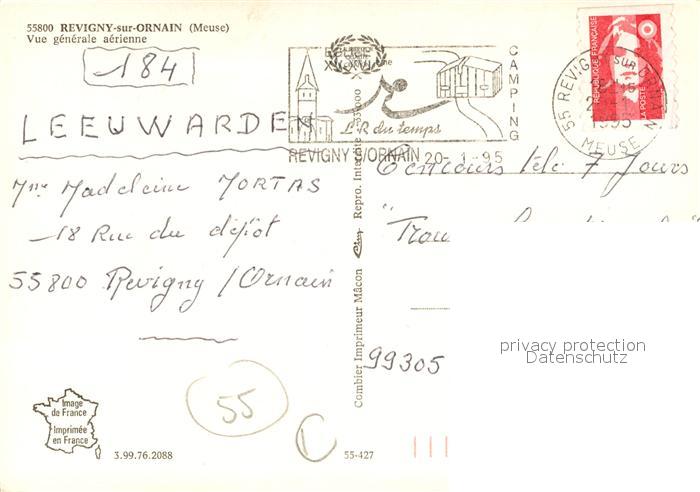 55800 REVIGNY-sur-ORNAIN (Meuse)
Vue générale aérienne
184
LEEUWARDEN
Mme Madeleine MORTAS
18 Rue du dépôt
55800 Revigny/Ornain
55
Image
de France
Imprimée
en France
3.99.76.2088
55-427
Combier Imprimeur Mâcon Cim Repro. Interdite
CAMPING
L'R du temps
REVIGNY S/ORNAIN 20-1-95
55 REVIGNY SUR ORNAIN
1995
MEUSE
REPUBLIQUE FRANÇAISE
LA POSTE
Concours télé 7 Jours
99305
privacy protection
Datenschutz